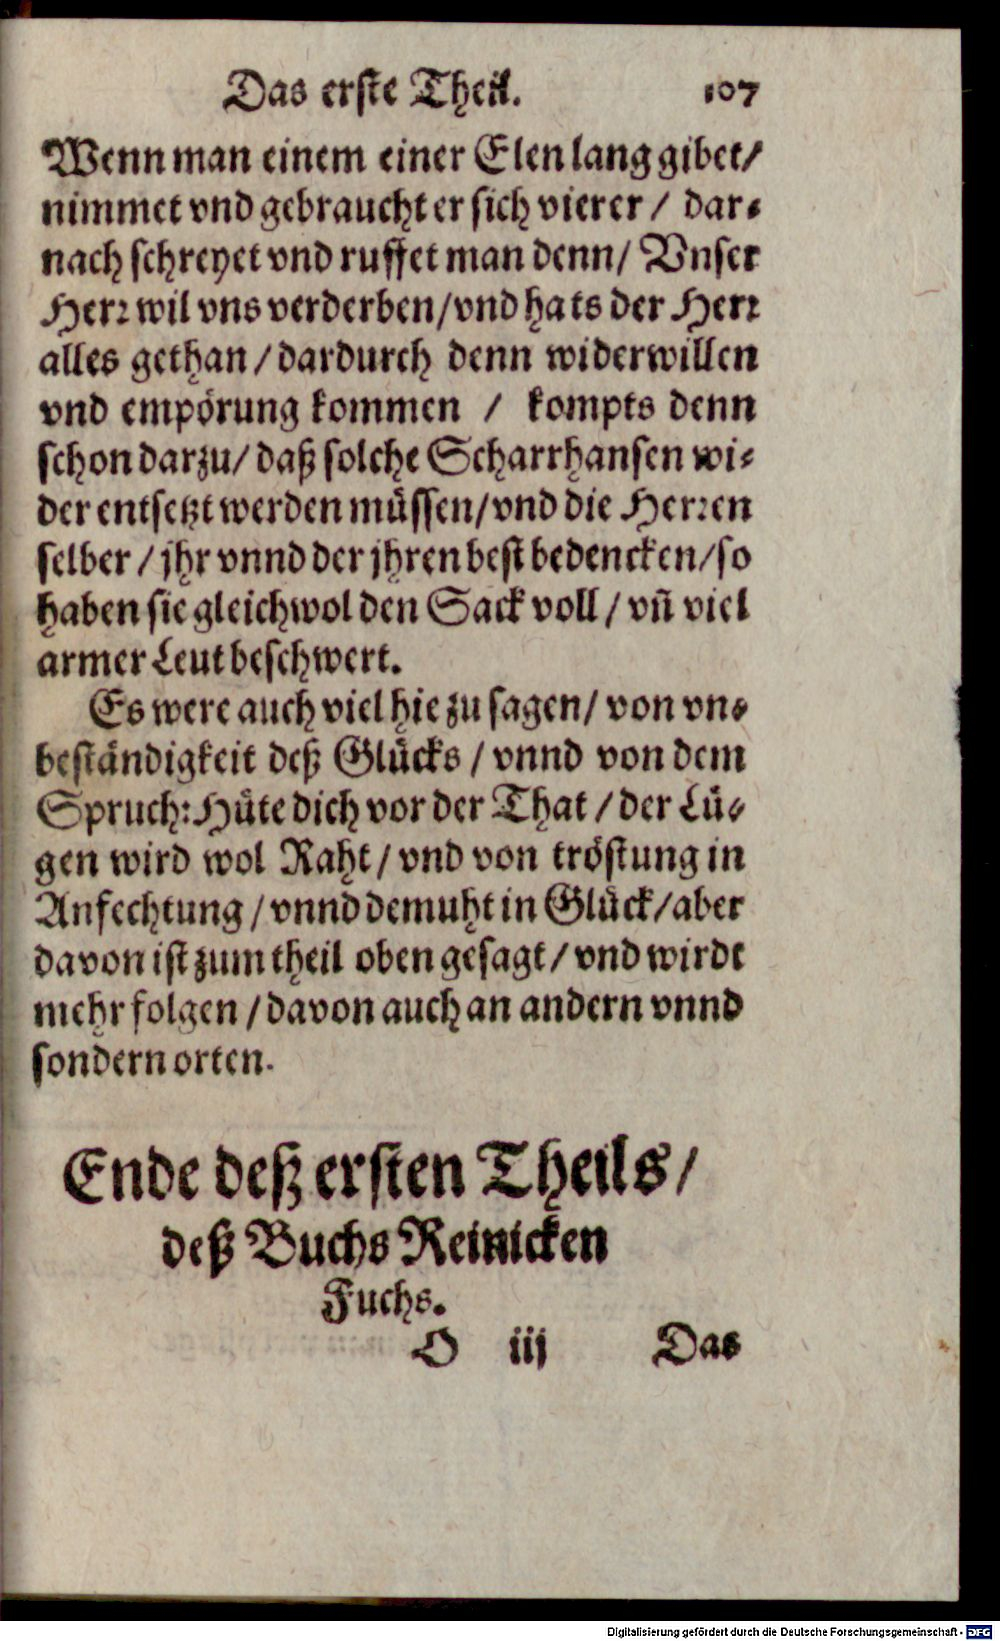 Das erste Theil. 107
Wenn man einem einer Elen lang gibet/
nimmet vnd gebraucht er sich vierer / dar⸗
nach schreyet vnd ruffet man denn/ Vnser
Herꝛ wil vns verderben/vnd hats der Herꝛ
alles gethan / dardurch denn widerwillen
vnd empörung kommen / kompts denn
schon darzu/ daß solche Scharrhansen wi⸗
der entsetzt werden müssen/vnd die Herꝛen
selber / jhr vnnd der jhren best bedencken/so
haben sie gleichwol den Sack voll / vñ viel
armer Leut beschwert.
Es were auch viel hie zu sagen/ von vn⸗
beständigkeit deß Glücks / vnnd von dem
Spruch: Hüte dich vor der That / der Lü⸗
gen wird wol Raht / vnd von tröstung in
Anfechtung / vnnd demuht in Glück/aber
davon ist zum theil oben gesagt / vnd wirdt
mehr folgen / davon auch an andern vnnd
sondern orten.
Ende deß ersten Theils/
deß Buchs Reinicken
Fuchs.
O iij Das
Digitalisierung gefördert durch die Deutsche Forschungsgemeinschaft - DFG